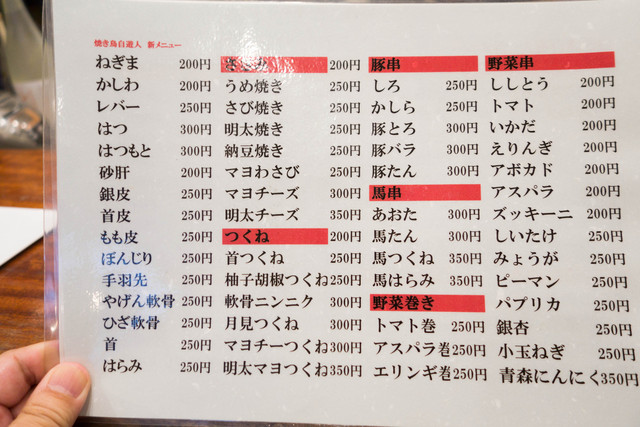 焼き鳥自遊人 新メニュー
ねぎま 200円
かしわ 200円
レバー 250円
はつ 300円
はつもと 300円
砂肝 200円
銀皮 250円
首皮 250円
もも皮 250円
ぼんじり 250円
手羽先 250円
やげん軟骨 250円
ひざ軟骨 250円
首 250円
はらみ 250円
200円
うめ焼き 250円
さび焼き 250円
明太焼き 250円
納豆焼き 250円
マヨわさび 250円
マヨチーズ 300円
明太チーズ 350円
つくね 200円
首つくね 250円
柚子胡椒つくね250円
軟骨ニンニク 300円
月見つくね 300円
マヨチーつくね300円
明太マヨつくね350円
豚串
しろ 250円
かしら 250円
豚とろ 300円
豚バラ 300円
豚たん 300円
馬串
あおた 300円
馬たん 300円
馬つくね 350円
馬はらみ 350円
野菜巻き
トマト巻 250円
アスパラ巻250円
エリンギ巻250円
野菜串
ししとう 200円
トマト 200円
いかだ 200円
えりんぎ 200円
アボカド 200円
アスパラ 200円
ズッキーニ 200円
しいたけ 250円
みょうが 250円
ピーマン 250円
パプリカ 250円
銀杏 250円
小玉ねぎ 250円
青森にんにく350円